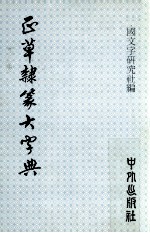 國文字研究社編
正草隸篆大字典
中外出版社